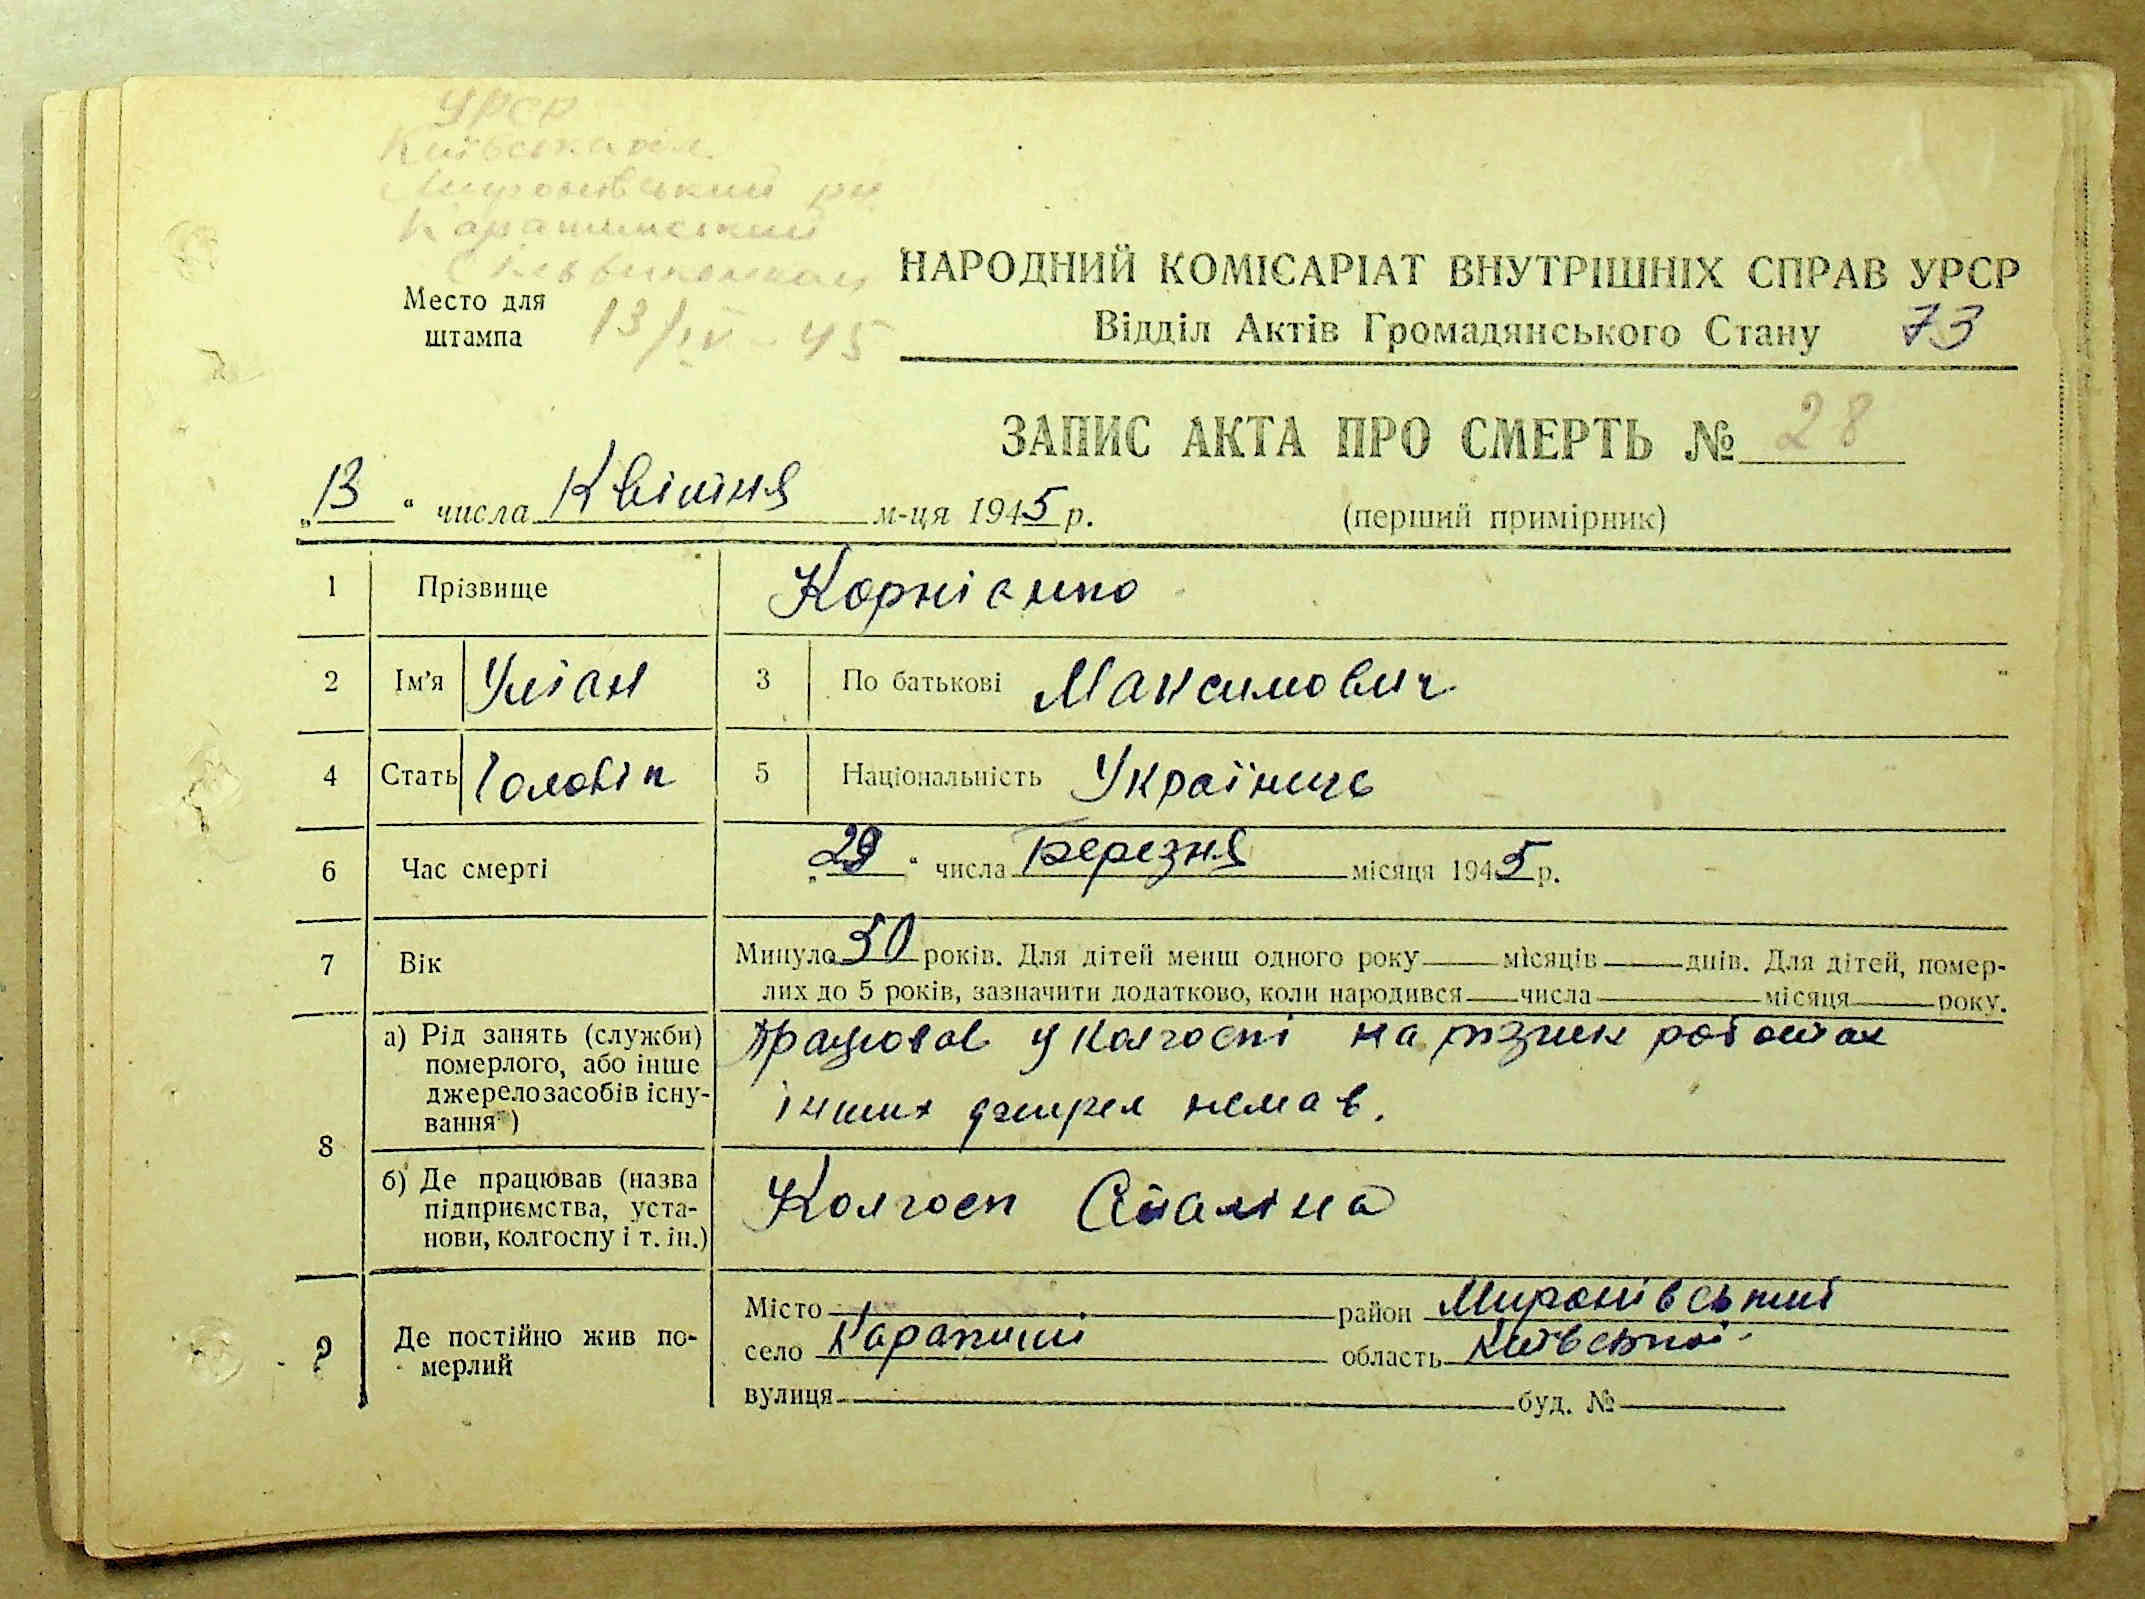 УРСР
Київська обл.
Миронівський рн
Карапишський
Сільвиконком
Место для
штампа
13/IV - 45
НАРОДНИЙ КОМІСАРІАТ ВНУТРІШНІХ СПРАВ УРСР
Відділ Актів Громадянського Стану 73
ЗАПИС АКТА ПРО СМЕРТЬ № 28
„13“ числа Квітня м-ця 1945 р. (перший примірник)
1 Прізвище Корнієнко
2 Ім'я Уліан 3 По батькові Максимович
4 Стать Чоловік 5 Національність Українець
6 Час смерті „29“ числа Березня місяця 1945 р.
7 Вік Минуло 50 років. Для дітей менш одного року місяців днів. Для дітей, помер-
лих до 5 років, зазначити додатково, коли народився числа місяця року.
8 а) Рід занять (служби)
померлого, або інше
джерело засобів існу-
вання*)
Працював у колгоспі на різних роботах
інших джерел немав.
б) Де працював (назва
підприємства, уста-
нови, колгоспу і т. ін.)
Колгосп Сталіна
9 Де постійно жив по-
мерлий
Місто район Миронівський
село Карапиші область Київської
вулиця буд. №